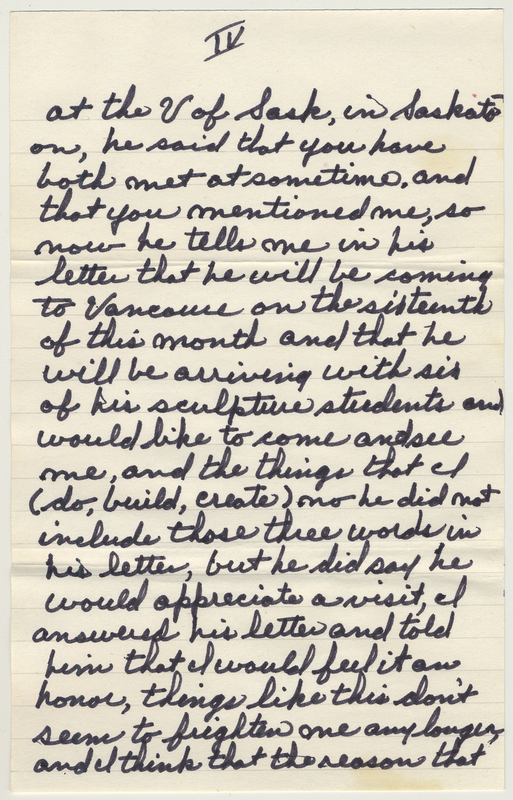 IV
at the U of Sask, in Saskato
on, he said that you have
both met at sometime. and
that you mentioned me, so
now he tells me in his
letter that he will be coming
to Vancouve on the sixteenth
of this month and that he
will be arriving with six
of his sculpture students and
would like to come and see
me, and the things that I
(do, build, create) no he did not
include those three words in
his letter, but he did say he
would appreciate a visit, I
answered his letter and told
him that I would feel it an
honor, things like this don't
seem to frighten me any longer,
and I think that the reason that